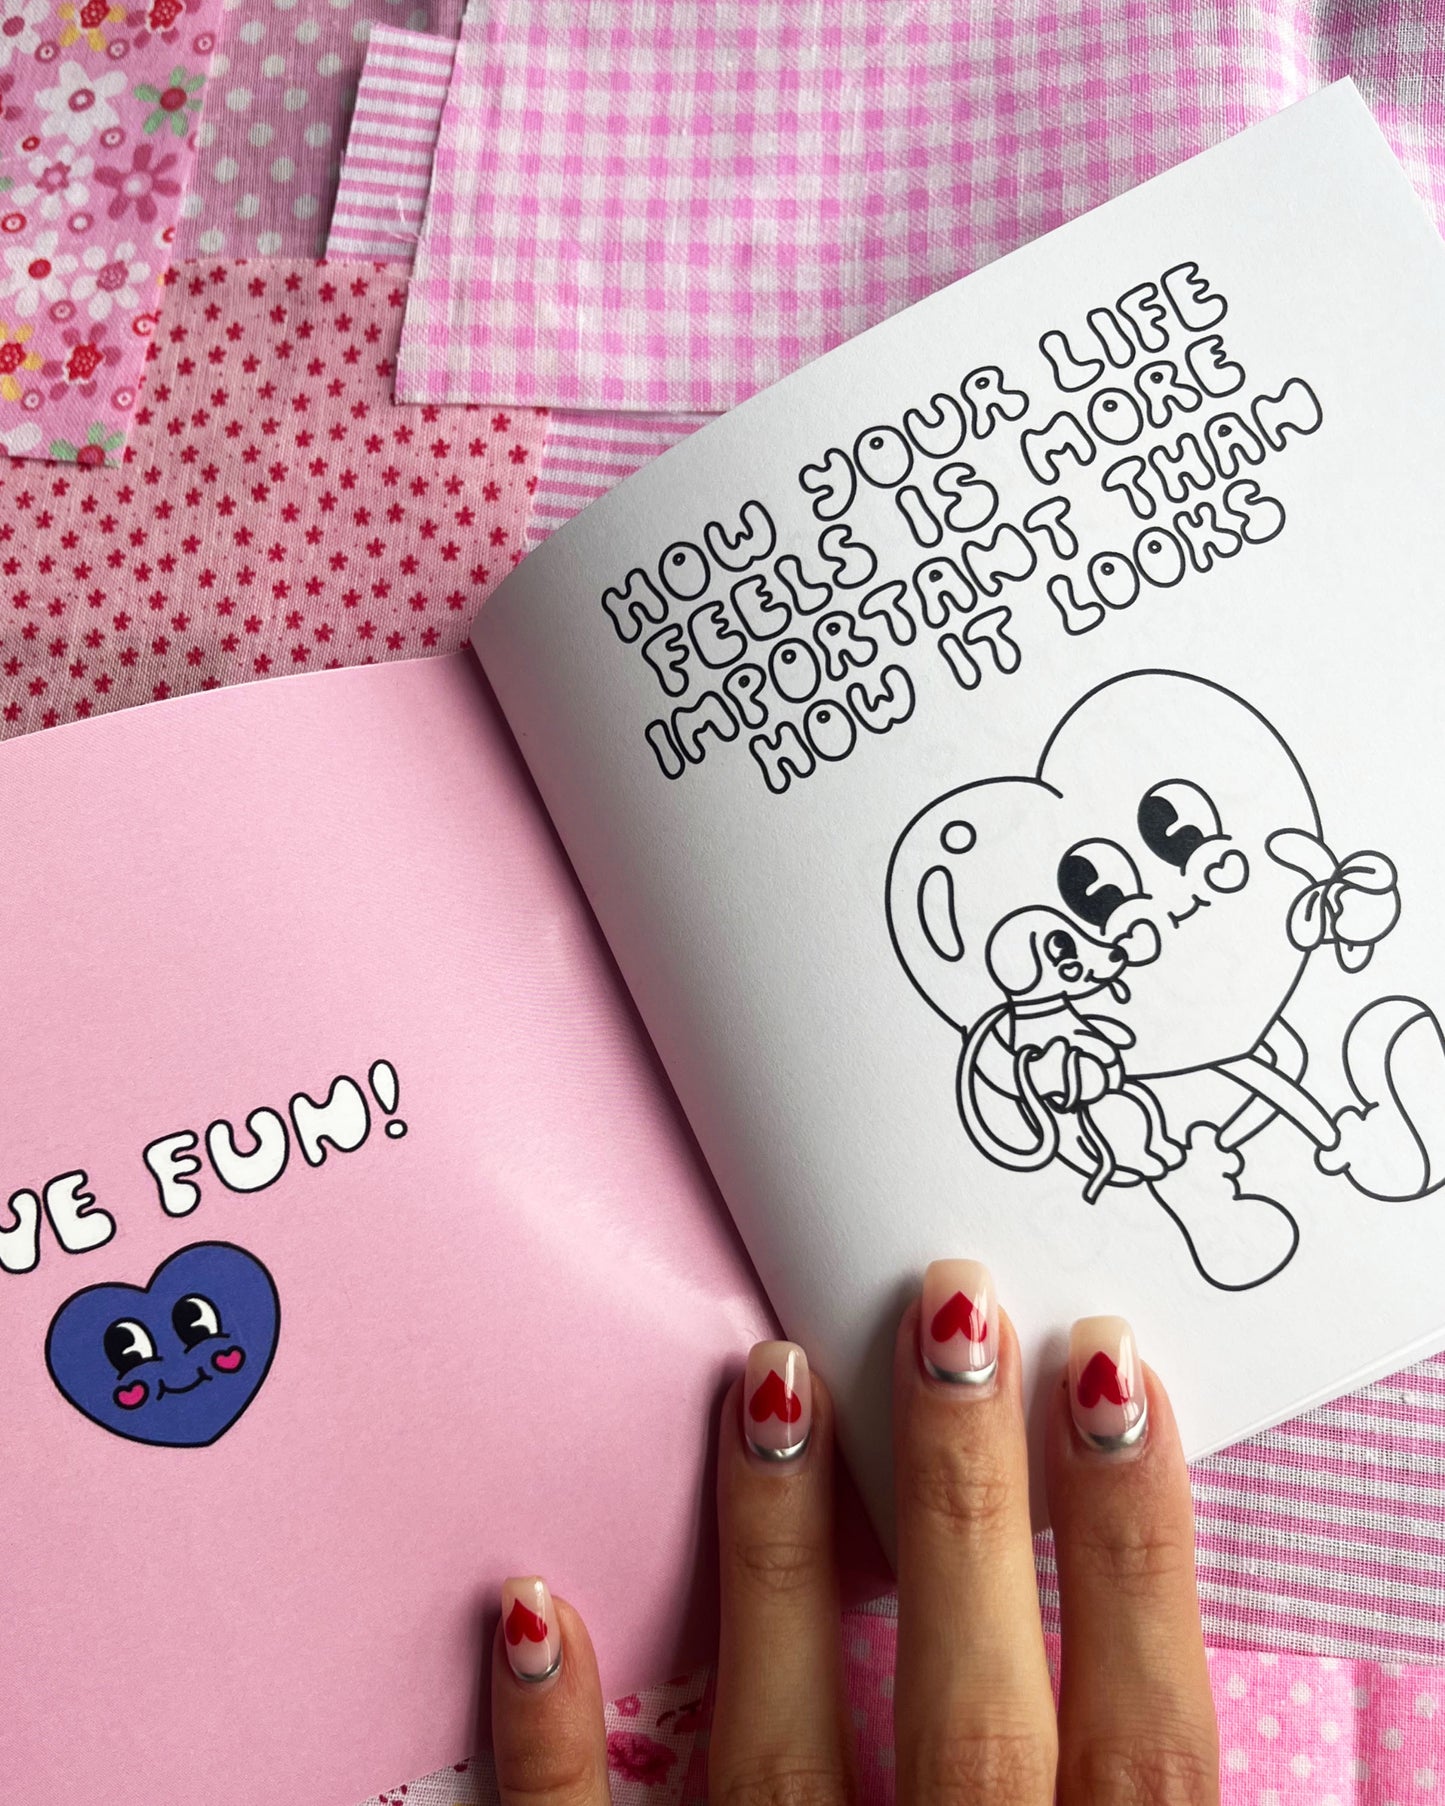 FUN!
HOW YOUR LIFE
FEELS IS MORE
IMPORTANT THAN
HOW IT LOOKS